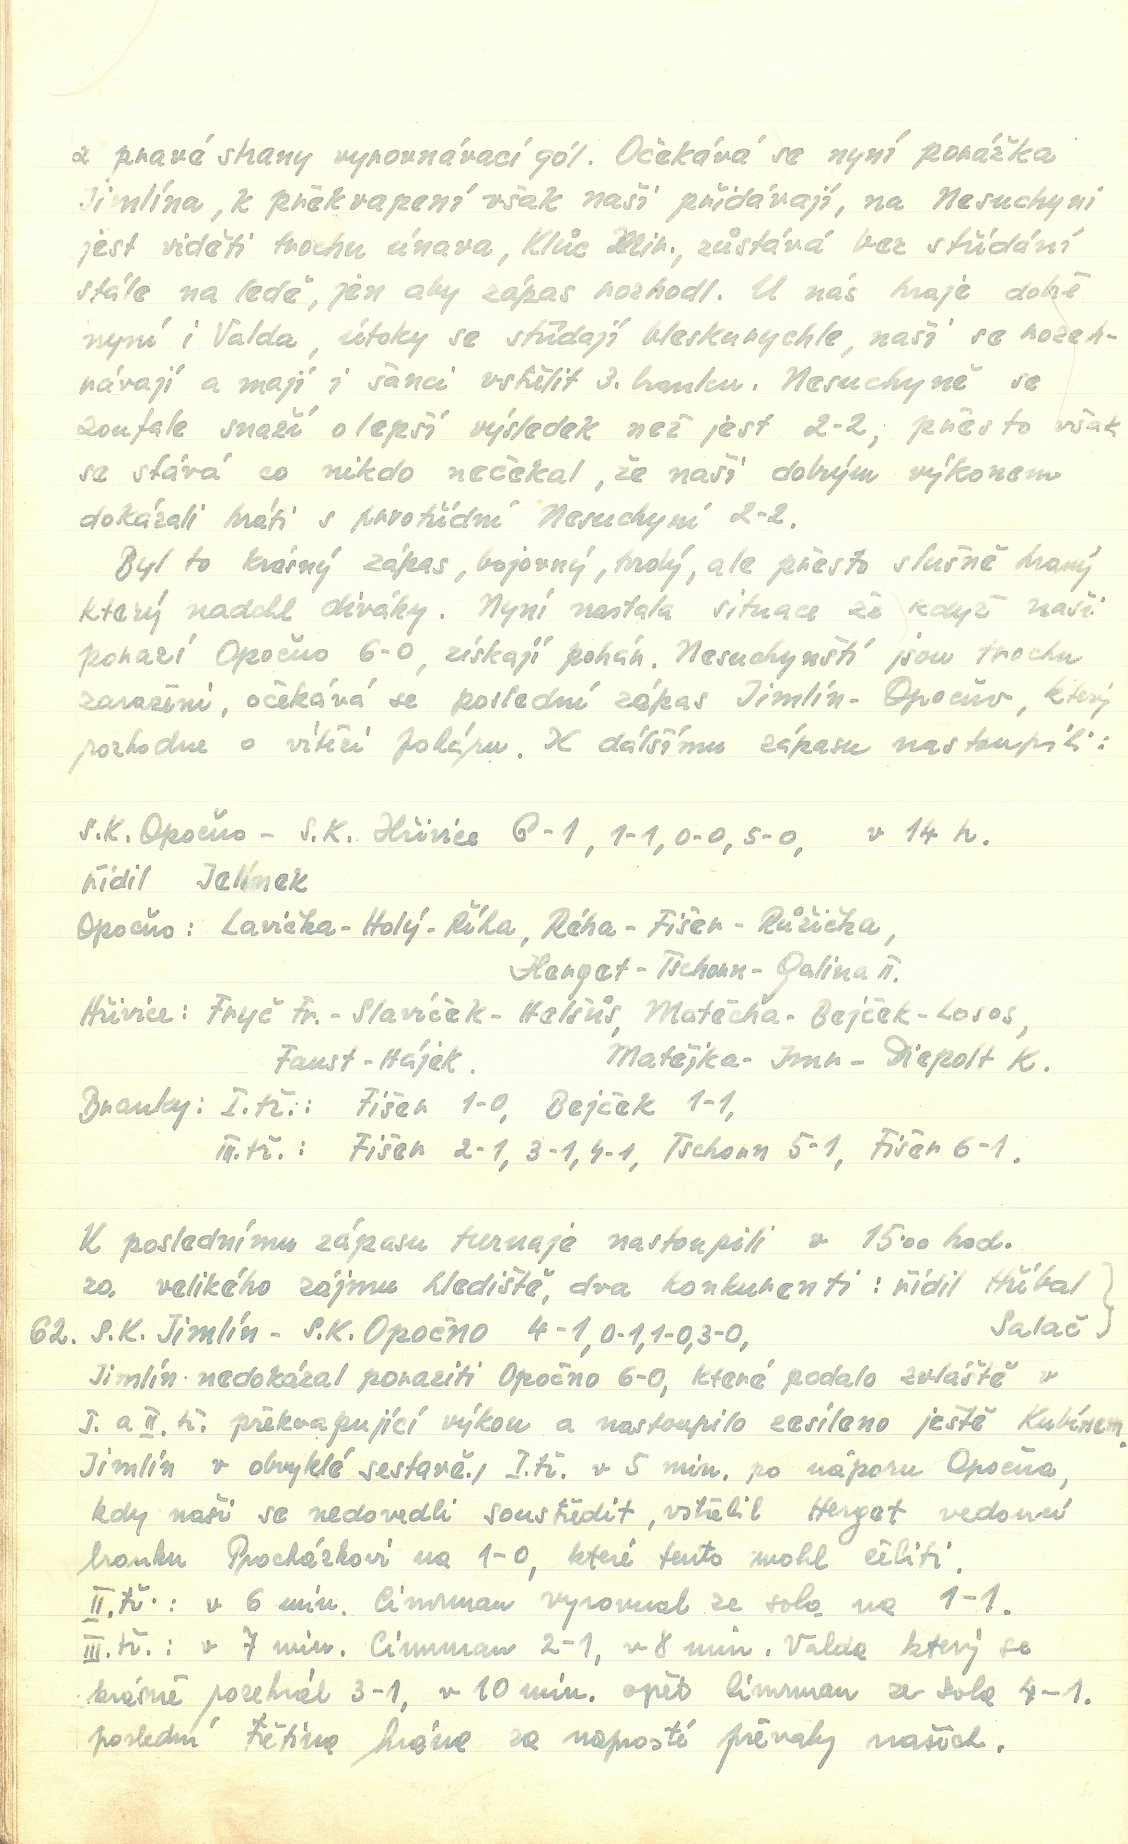 z pravé strany vyrovnávací gól. Očekává se nyní porážka
Jimlína, k překvapení však naši přidávají, na Nesuchyni
jest viděti trochu únava, Klůc Mir., zůstává bez střídání
stále na ledě, jen aby zápas rozhodl. U nás hraje dobře
nyní i Valda, útoky se střídají bleskurychle, naši se rozeh-
rávají a mají i šanci vstřelit 3. branku. Nesuchyně se
zoufale snaží o lepší výsledek než jest 2-2, přesto však
se stává co nikdo nečekal, že naši dobrým výkonem
dokázali hráti s prvotřídní Nesuchyní 2-2.
Byl to krásný zápas, bojovný, tvrdý, ale přesto slušně hraný
který nadchl diváky. Nyní nastala situace že když naši
porazí Opočno 6-0, získají pohár. Nesuchynští jsou trochu
zaraženi, očekává se poslední zápas Jimlín - Opočno, který
rozhodne o vítězi poháru. K dalšímu zápasu nastoupili:
S.K. Opočno - S.K. Hřivice 6-1, 1-1, 0-0, 5-0, v 14 h.
řídil Jelínek
Opočno: Lavička - Holý - Říha, Réha - Fišer - Růžička,
Herget - Tschorn - Galina II.
Hřivice: Fryč Fr. - Slavíček - Helšůs, Matěcha - Bejček - Losos,
Faust - Hájek. Matějka - Imr - Diepolt K.
Branky: I.tř.: Fišer 1-0, Bejček 1-1,
III.tř.: Fišer 2-1, 3-1, 4-1, Tschorn 5-1, Fišer 6-1.
K poslednímu zápasu turnaje nastoupili v 15·00 hod.
za velikého zájmu hlediště, dva konkurenti: řídil Hříbal
62. S.K. Jimlín - S.K. Opočno 4-1, 0-1, 1-0, 3-0, Salač
Jimlín nedokázal poraziti Opočno 6-0, které podalo zvláště v
I. a II. tř. překvapující výkon a nastoupilo zesíleno ještě Kubínem.
Jimlín v obvyklé sestavě., I.tř. v 5 min. po náporu Opočna,
kdy naši se nedovedli soustředit, vstřelil Herget vedoucí
branku Procházkovi na 1-0, které tento mohl čeliti.
II.tř.: v 6 min. Cimrman vyrovnal ze sola na 1-1.
III.tř.: v 7 min. Cimrman 2-1, v 8 min. Valda který se
krásně rozehrál 3-1, v 10 min. opět Cimrman ze sola 4-1.
poslední třetina hrána za naprosté převahy našich.